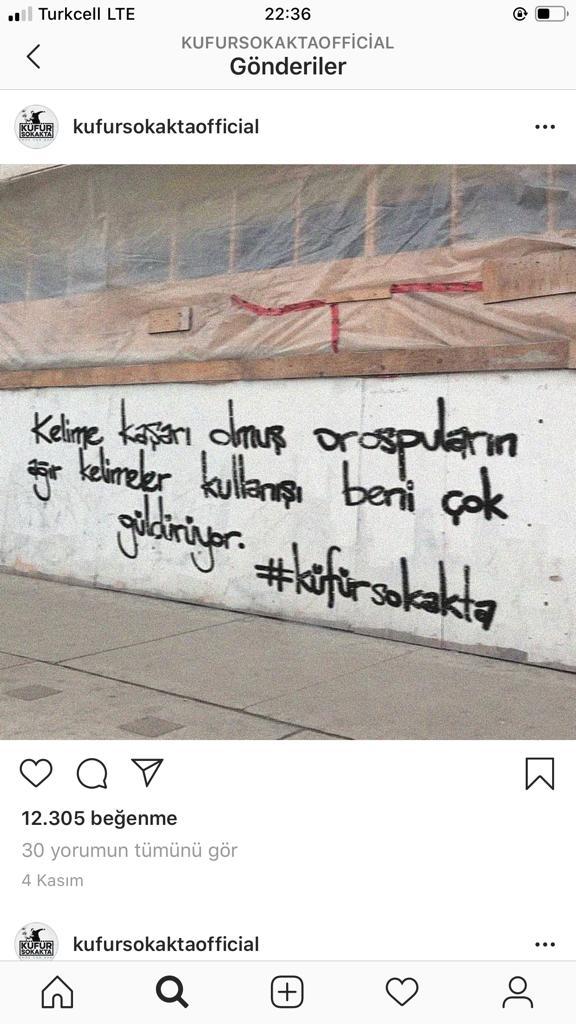 Turkcell LTE 22:36
KUFURSOKAKTAOFFİCİAL
Gönderiler
KÜFÜR
SOKAKTA
kufursokaktaofficial
Kelime kaşarı olmuş orospuların
ağır kelimeler kullanışı beni çok
güldürüyor.
#küfürsokakta
12.305 beğenme
30 yorumun tümünü gör
4 Kasım
KÜFÜR
SOKAKTA
kufursokaktaofficial